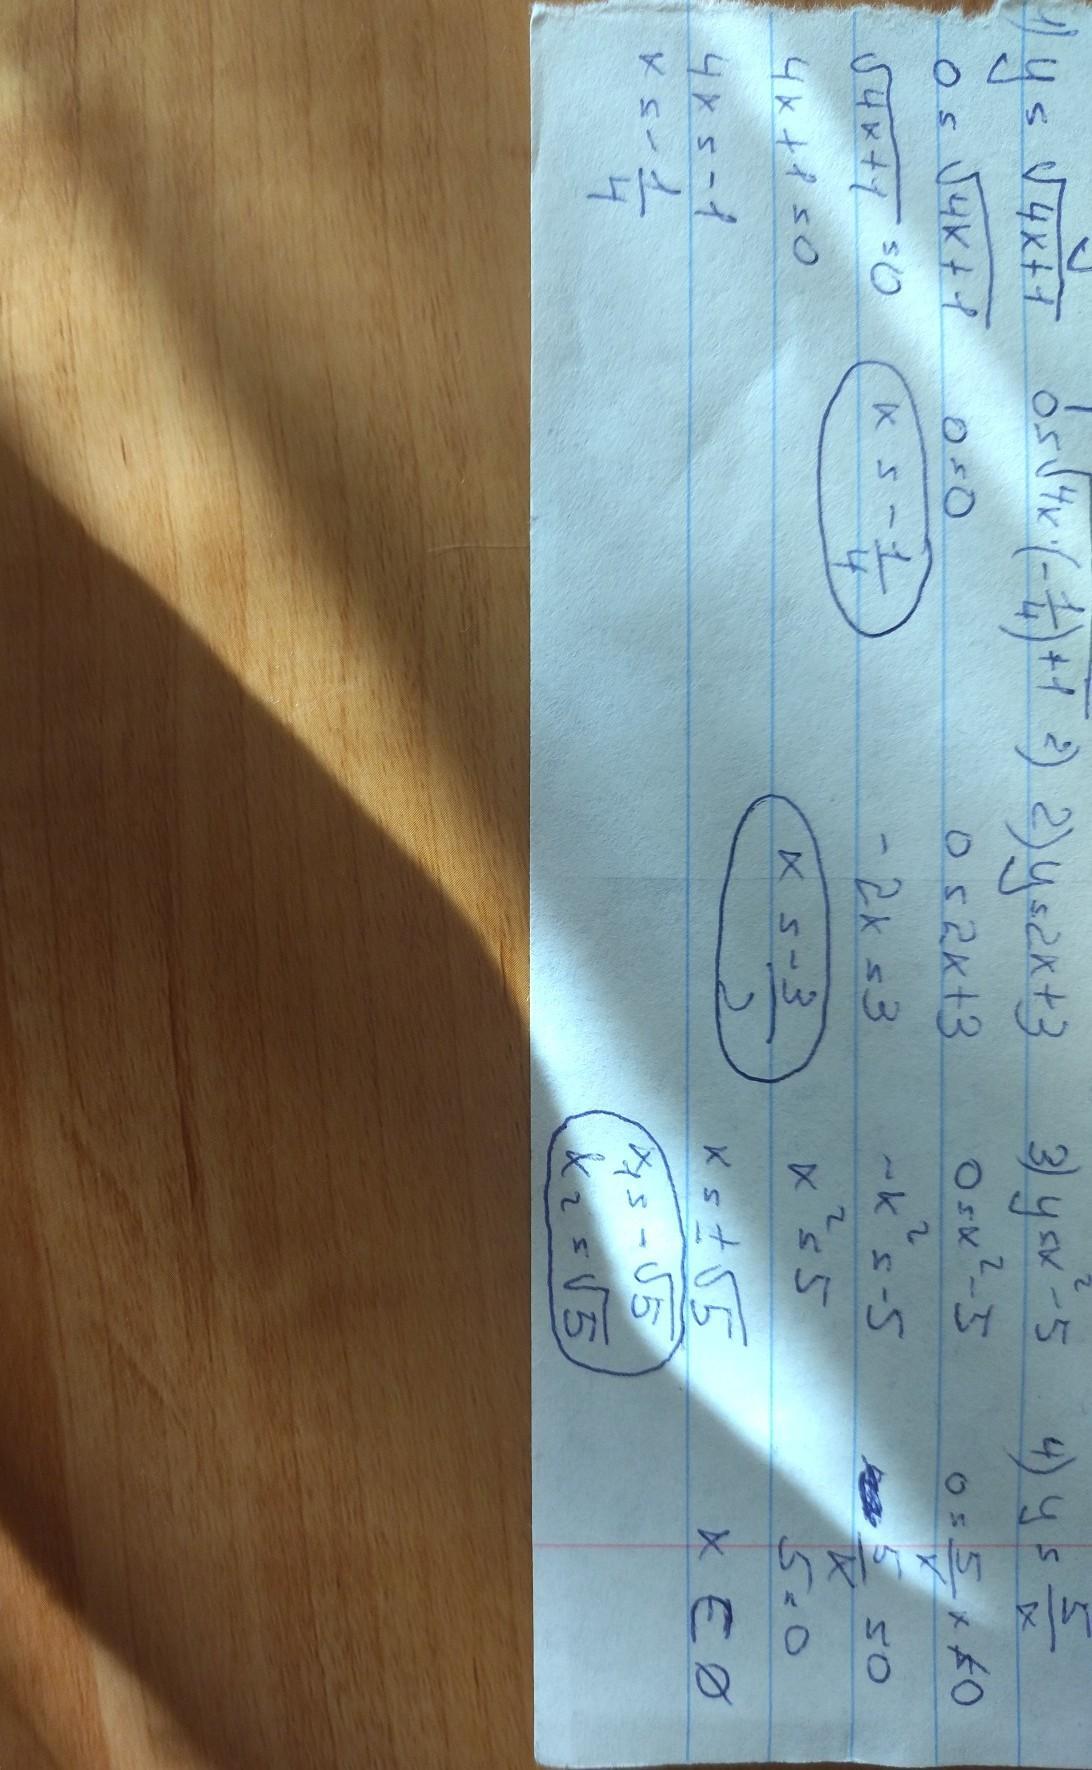 1) y = √4x+1
0 = √4x+1
√4x+1 = 0
4x+1=0
4x = -1
x = -1/4
0=√4x·(-1/4)+1
0=0
x = -1/4
2) 2) y=2x+3
0=2x+3
-2x=3
x = -3/2
3) y=x²-5
0=x²-5
-x²=-5
x²=5
x=±√5
x₁=-√5
x₂=√5
4) y = 5/x
0=5/x x≠0
5/x =0
5=0
x ∈ Ø